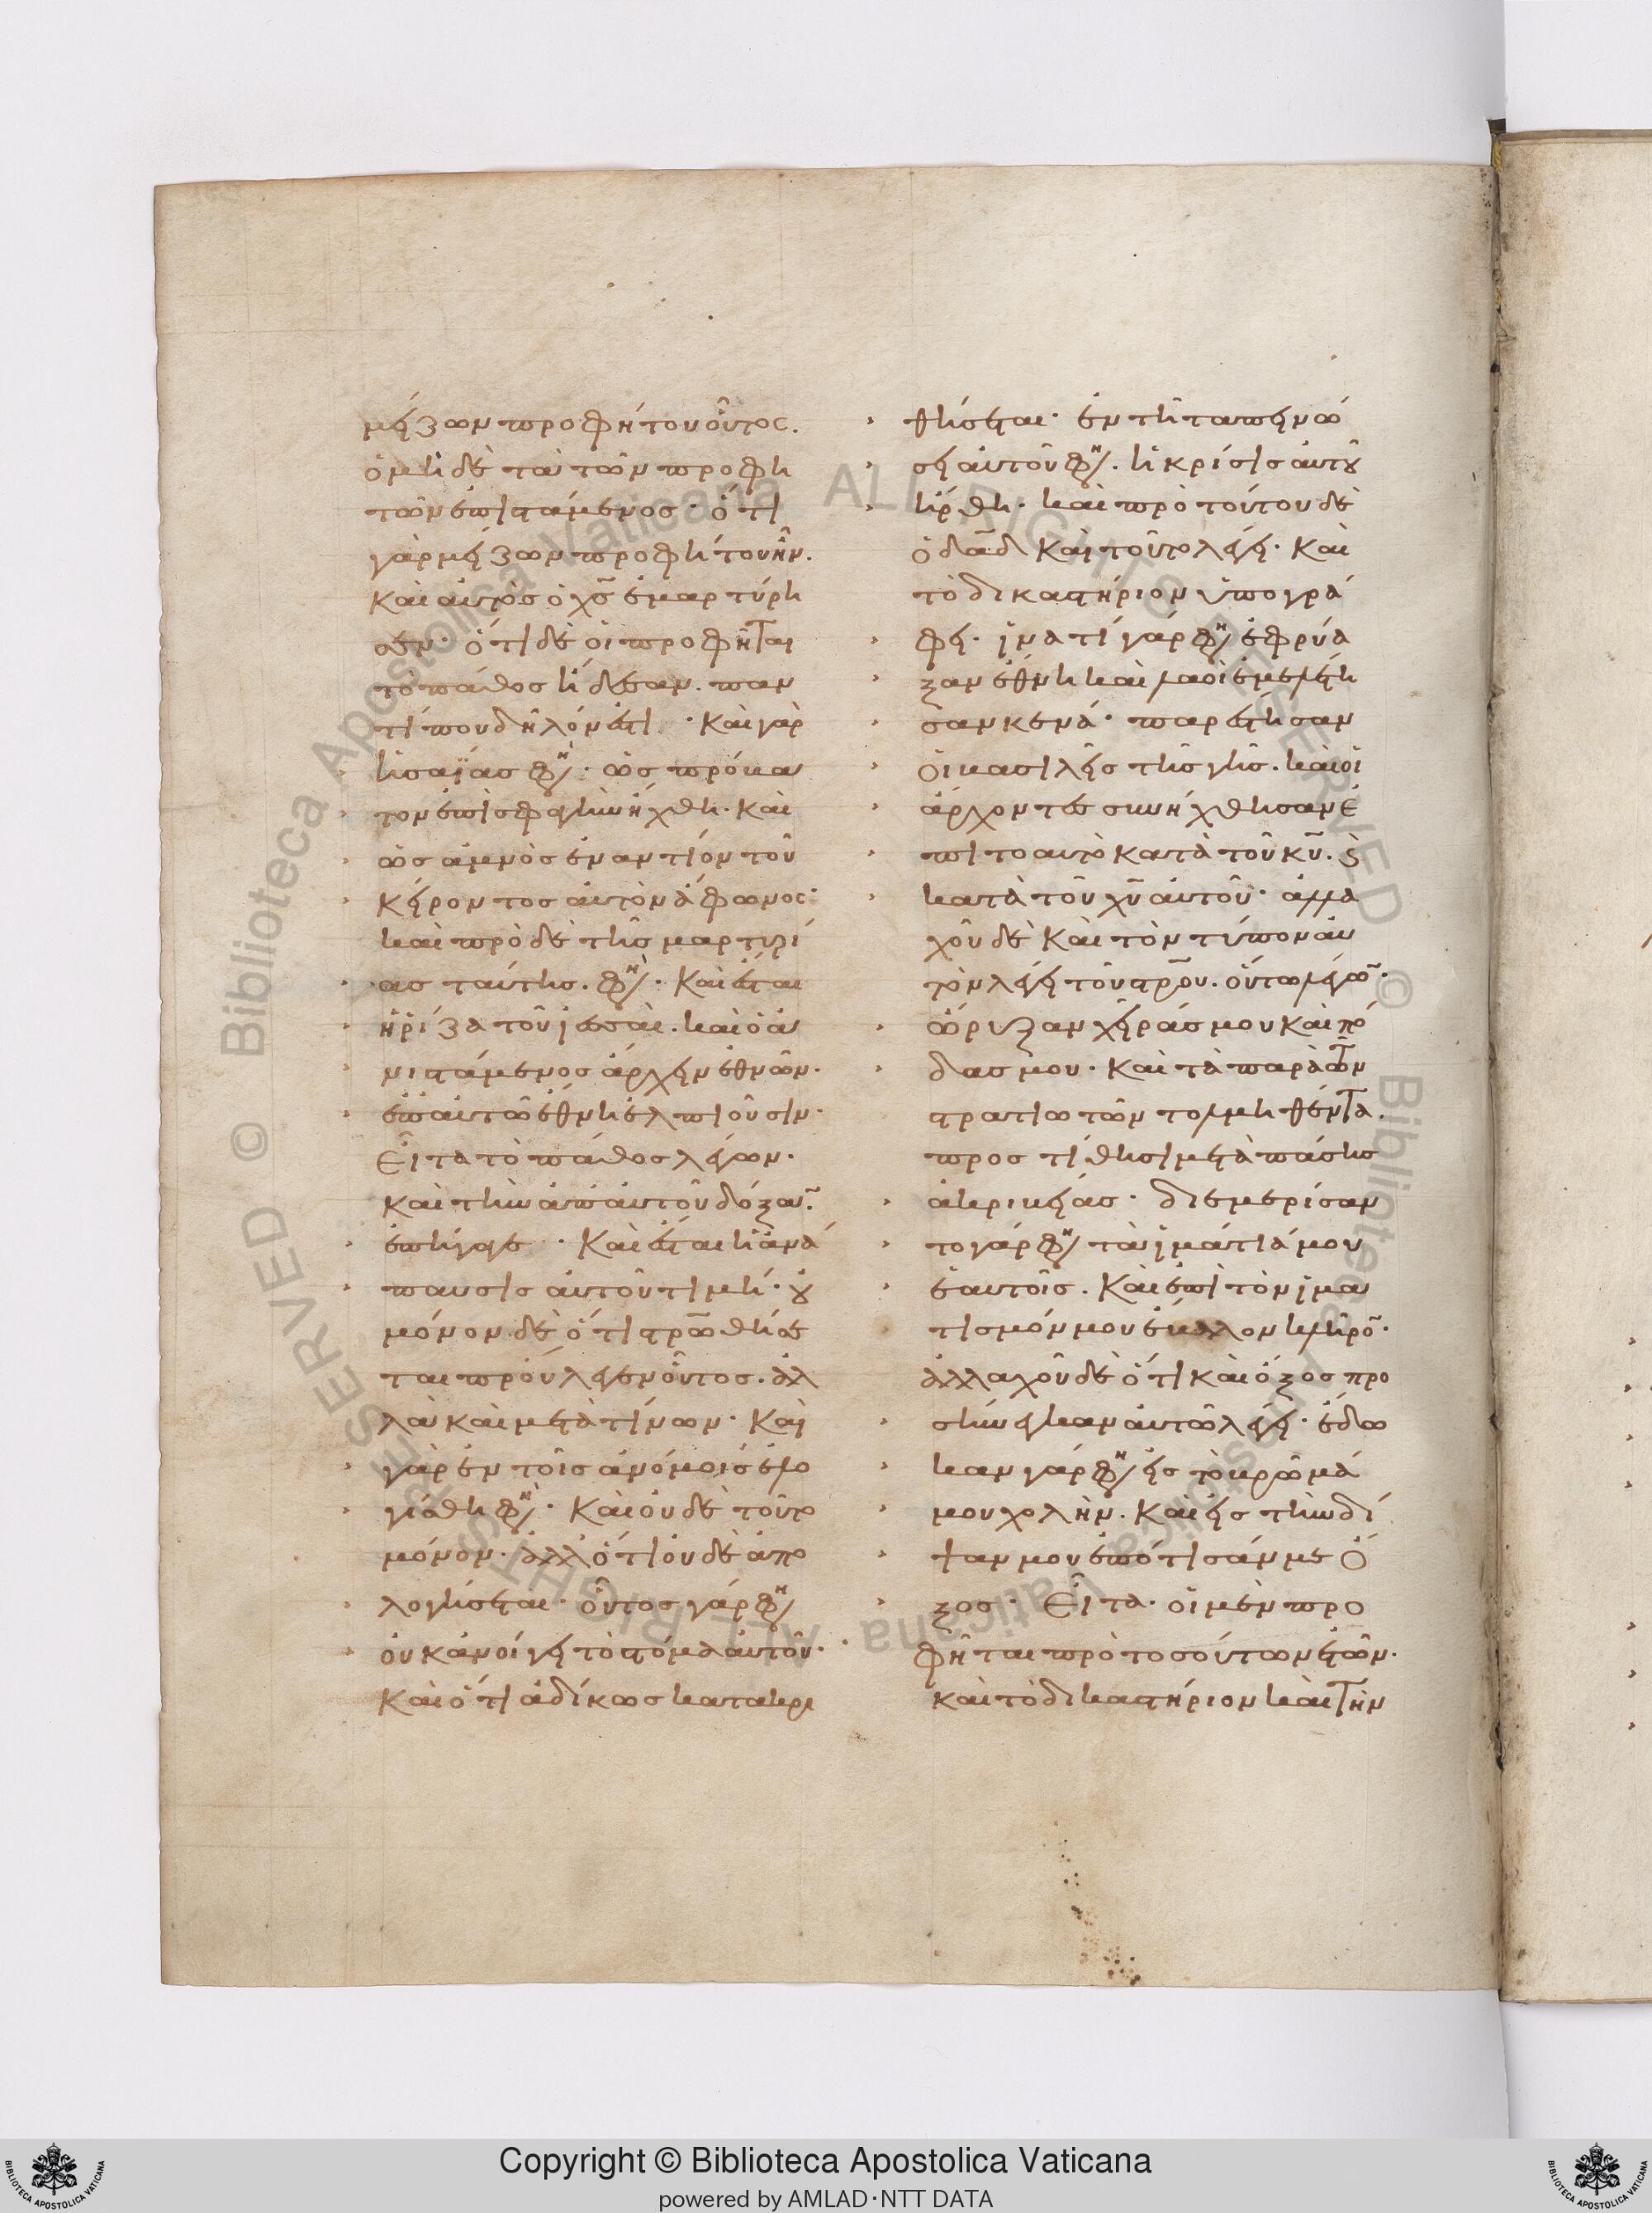 μείζων προφήτου οὗτος.
ὁ μὴ δὲ τὰ τῶν προφη
τῶν ἐπιστάμενος· ὅτι
γὰρ μείζων προφήτου ἦν.
καὶ αὐτὸς ὁ χς̅ ἐμαρτύρη
σεν· ὅτι δὲ οἱ προφῆται
τὸ πάθος ᾔδεσαν. παν
τί που δῆλόν ἐστι· καὶ γὰρ
ἡσαΐας φη· ὡς πρόβα
τον ἐπὶ σφαγὴν ἤχθη· καὶ
ὡς ἀμνὸς ἐναντίον τοῦ
κείροντος αὐτὸν ἄφωνος·
καὶ πρὸ δὲ τῆς μαρτυρί
ας ταύτης. φη· καὶ ἔσται
ἡ ῥίζα τοῦ ἰεσσαί. καὶ ὁ ἀ
νιστάμενος ἄρχειν ἐθνῶν·
ἐπ' αὐτῶ ἔθνη ἐλπιοῦσιν·
Εἶτα τὸ πάθος λέγων.
καὶ τὴν ἀπ' αὐτοῦ δόξαν.
ἐπήγαγε· καὶ ἔσται ἡ ἀνά
παυσις αὐτοῦ τιμή· οὐ
μόνον δὲ ὅτι στρ̅ωθήσε
ται προύλεγεν οὗτος. ἀλ
λὰ καὶ μετὰ τίνων· καὶ
γὰρ ἐν τοῖς ἀνόμοις ἐλο
γίσθη φη· καὶ οὐδὲ τοῦτο
μόνον. ἀλλ' ὅτι οὐδὲ ἀπο
λογήσεται· οὗτος γάρ φη
οὐκ ἀνοίγει τὸ στόμα αὐτοῦ·
καὶ ὅτι ἀδίκως κατακρι
θήσεται· ἐν τῆ ταπεινώ
σει αὐτοῦ φη. ἡ κρίσις αὐτοῦ
ἤρθη· καὶ πρὸ τούτου δὲ
ὁ δα̅δ καὶ τοῦτο λέγει· καὶ
τὸ δικαστήριον ὑπογρά
φει· ἱνατί γάρ φη ἐφρύα
ξαν ἔθνη καὶ λαοὶ ἐμελέτη
σαν κενά· παρέστησαν
οἱ βασιλεῖς τῆς γῆς. καὶ οἱ
ἄρχοντες συνήχθησαν ἐ
πὶ τὸ αυτὸ κατὰ τοῦ κυ̅. καὶ
κατὰ τοῦ χυ̅ αὐτοῦ· ἀλλα
χοῦ δὲ καὶ τὸν τύπον αὐ
τὸν λέγει τοῦ στρ̅ου. οὕτω λέγω̅·
ὤρυξαν χεῖράς μου καὶ πό
δας μου· καὶ τὰ παρὰ τῶν
στρατιωτῶν τολμηθέντα.
προστίθησι μετὰ πάσης
ἀκριβείας· διεμερίσαν
το γάρ φη τὰ ἱμάτιά μου
ἑαυτοῖς. καὶ ἐπὶ τὸν ἱμα
τισμόν μου ἔβαλον κλῆρο̅·
ἀλλαχοῦ δὲ ὅτι καὶ ὄξος προ
σήνεγκαν αὐτῶ λέγει· ἔδω
καν γάρ φη εἰς τὸ βρῶμά
μου χολήν. καὶ εἰς τὴν δί
ψαν μου ἐπότισάν με ὄ
ξος· Εἶτα· οἱ μὲν προ
φῆται πρὸ τοσούτων ἐτῶν.
καὶ τὸ δικαστήριον καὶ τὴν
Copyright © Biblioteca Apostolica Vaticana
powered by AMLAD·NTT DATA